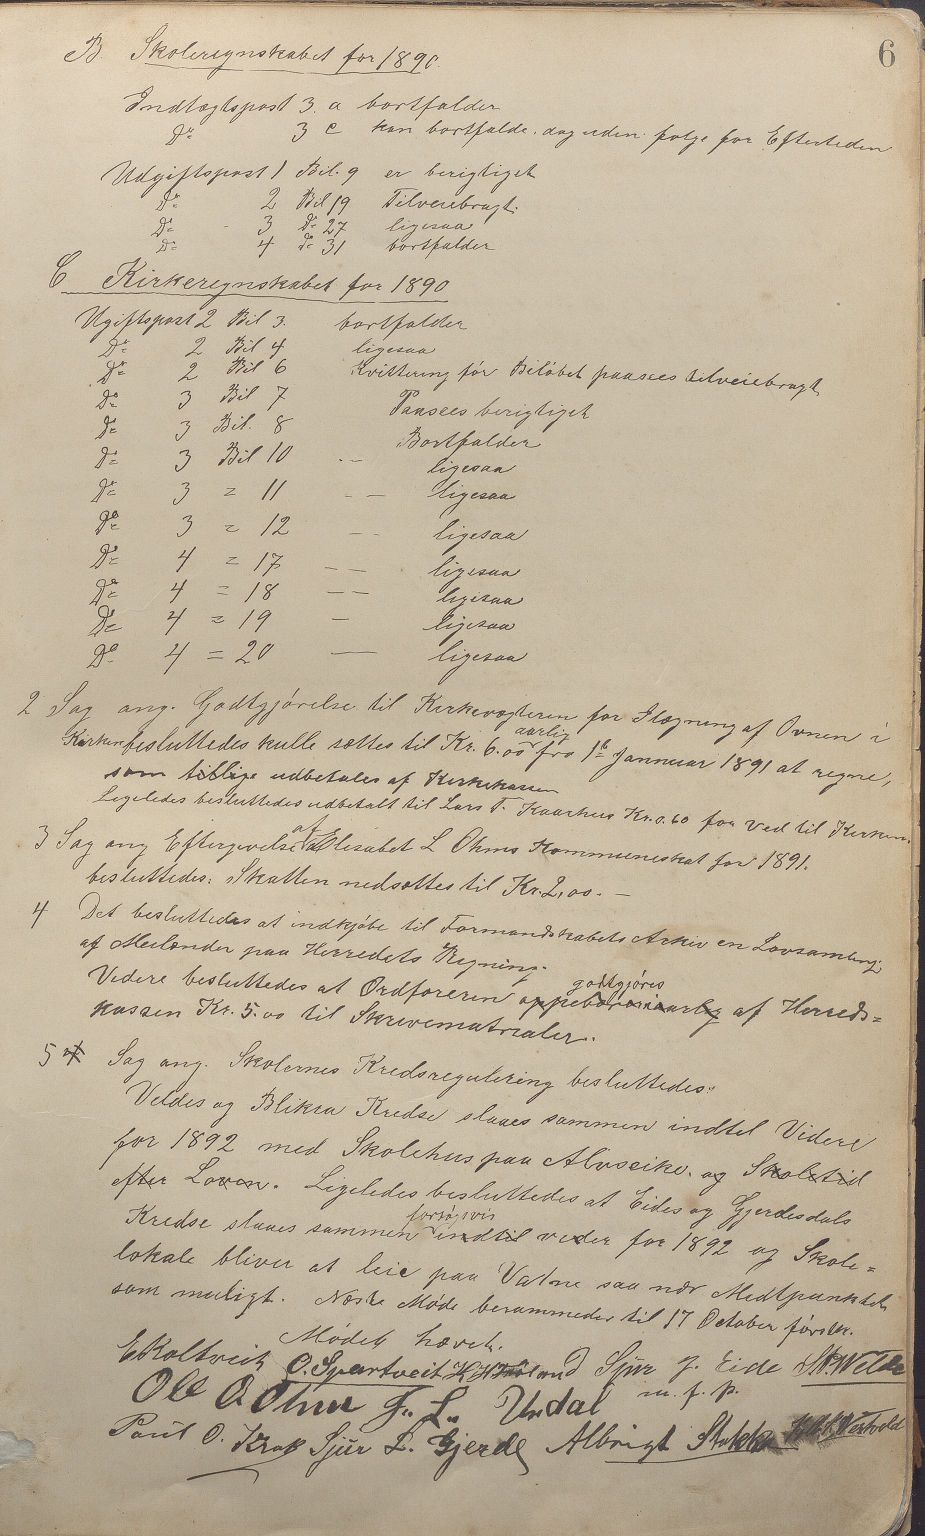 6
B. Skoleregnskabet for 1890.
Indtægtspost 3 a bortfalder
Do 3 c kan bortfalde dog uden følge for Eftertiden
Udgiftspost 1 Bil. 9 er berigtiget
Do 2 Bil 19 Tilveiebragt.
Do 3 Do 27 ligesaa
Do 4 Do 31 bortfalder
C Kirkeregnskabet for 1890
Ugiftspost 2 Bil 3. bortfalder
Do 2 Bil 4 ligesaa
Do 2 Bil 6 Kvittering for Beløbet paasees tilveiebragt
Do 3 Bil 7 Paasees berigtiget
Do 3 Bil. 8 Bortfalder
Do 3 Bil 10 -- ligesaa
Do 3 = 11 -- ligesaa
Do 3 = 12 -- ligesaa
Do 4 = 17 -- ligesaa
Do 4 = 18 -- ligesaa
Do 4 = 19 - ligesaa
Do 4 = 20 — ligesaa
2 Sag ang. Godtgjørelse til Kirkevægteren for Ilægning af Ovnen i
Kirken besluttedes skulle sættes til Kr. 6.00 aarlig fra 1ste Jannuar 1891 at regne,
som tillige udbetales af Kirkekassen
Ligeledes besluttedes udbetalt til Lars T. Kaarhus Kr. 0.60 for Ved til Kirken.
3 Sag ang Eftergivelse af Elisabet L Ohms Kommuneskat for 1891.
besluttedes: Skatten nedsættes til Kr. 2,00. —
4 Det besluttedes at indkjøbe til Formandskabets Arkiv en Lovsamling
af Meelænder paa Herredets Regning.
Videre besluttedes at Ordføreren godtgjøres af Herreds=
kassen Kr. 5.00 til Skrivematrialer.
5 Sag ang. Skolernes Kredsregulering besluttedes:
Veldes og Blikra Kredse slaaes sammen indtil Videre
for 1892 med Skolehus paa Alvseike. og Skoletid
efter Loven. Ligeledes besluttedes at Eides og Gjerdesdals
Kredse slaaes sammen forsøgsvis indtil veder for 1892 og Skole=
lokale bliver at leie paa Vatne saa nær Medtpunktet
som muligt. Næste Møde berammedes til 17 October førstk.
Mødet hævet.
E Koltveit O. Svartveit Sjur J. Eide
m. f. p.
Ole O Ohm J. L. Undal
Paul O. Sjur L. Gjerde Albrigt Stokka